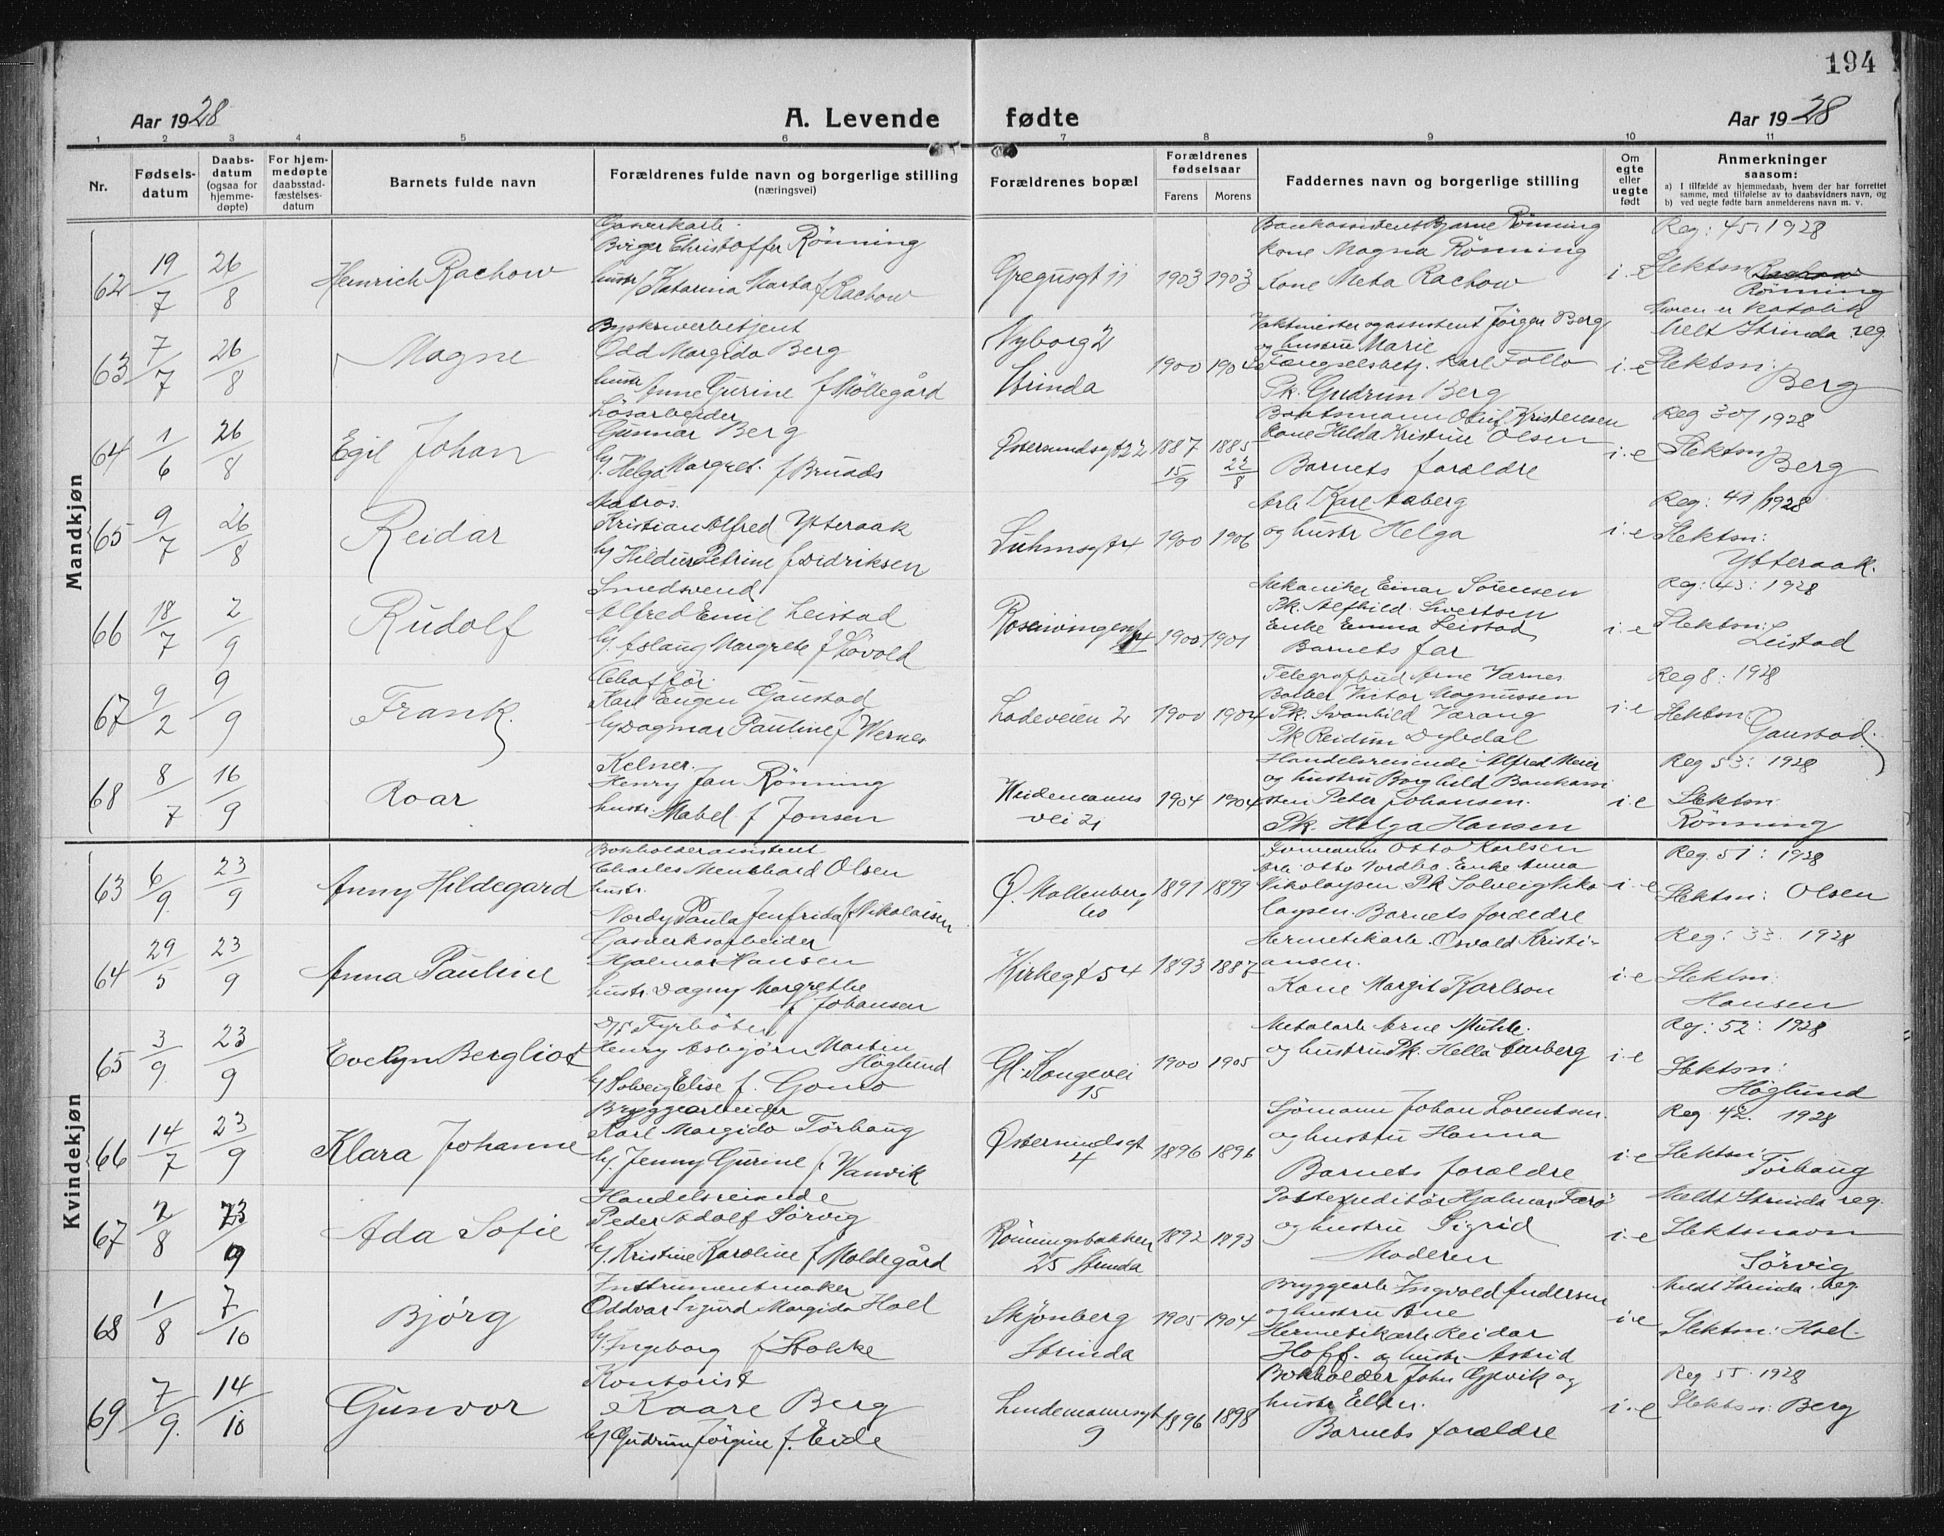 194
Aar 1928
A. Levende fødte
Aar 1928
1 2 3 4 5 6 7 8 9 10 11
Nr.
Fødselsdatum
Daabsdatum (ogsaa for hjemmedøpte)
For hjemmedøpte daabsstadfæstelsesdatum
Barnets fulde navn
Forældrenes fulde navn og borgerlige stilling (næringsvei)
Forældrenes bopæl
Forældrenes fødselsaar
Farens Morens
Faddernes navn og borgerlige stilling
Om egte eller uegte født
Anmerkninger saasom:
a) I tilfælde av hjemmedaab, hvem der har forrettet samme, med tilføielse av to daabsvidners navn, og
b) ved uegte fødte barn anmelderens navn m. v.
Mandkjøn
62 19/7 26/8 Heinrich Rachow
Birger Christoffer Rönning
hustr Katarina Marta f Rachow
Gregusgt 11 1903 1903
Bankassistent Bjarne Rönning
Kone Magna Rönning
Kone Meta Rachow
i. e
Reg: 45: 1928
Slektsn Rachow
Rönning
Moren er katolik
63 7/7 26/8 Magne
Odd Margido Berg
hustr Anne Gurine f Möllegård
Nyborg 2
Strinda
1900
Vaktmester og assistent Jörgen Berg
og hustru Marie
Fængselsbetj. Karl Follo
Pk. Gudrun Berg
i. e
Meldt Strinda reg.
Slektsn:
Berg
64 1/6 26/8 Egil Johan
Lösarbeider
Gunnar Berg
h/ Helga Margret. f Bruads
Östersundsgt 22 1887 15/9 1885 22/8
Baatsmann Oluf Kristensen
Kone Hilda Kristine Olsen
Barnets forældre
i. e
Reg 30/1928
Slektsn
Berg
65 9/7 26/8 Reidar
Matros.
Kristian Alfred Ytteraak
h/ Hildur Petrine f Didriksen
Suhmsgt 4 1900 1906
Arb Karl Aaberg
og hustr Helga
i. e
Reg: 41/1928
Slektsn:
Ytteraak.
66 18/7 2/9 Rudolf
Smedsvend
Alfred Emil Leistad
h/. Aslaug Margrete f Lövold
1900 1901
Mekaniker Einar Sörensen
Pk. Alfhild Sivertsen
Enke Emma Leistad
Barnets far
i. e
Reg: 43: 1928
Slektsn:
Leistad
67 9/2 9/9 Frank.
Chafför.
Karl Eugen Gaustad
h/ Dagmar Pauline f Wernes
Ladeveien 2 1900 1904
Telegrafbud Arne Varnes
Barber Victor Magnussen
Pk. Svanhild Værang
Pk Reidun Dybdal
i. e
Reg 8: 1928
Slektsn:
Gaustad.
68 8/7 16/9 Roar
Kelner.
Henry Jan Rönning
hustr. Mabel f Jonsen
Weidemanns
vei 21
1904 1904
Handelsreisende Alfred Meier
og hustru Borghild Bankassi
sten Peter Johansen.
Pk. Helga Hansen
i. e
Reg 53: 1928
Slektsn:
Rönning
Kvindekjøn
63 6/9 23/9 Anny Hildegard
Bokholderassistent
Charles Menthard Olsen
hustr.
Nordy Paula Jenfrida f Nikolaisen
Ö. Mollenberg
60
1891 1899
Formann Otto Karlsen
Arb. Otto Nordbo. Enke Anna
Nikolaysen. Pk Solveig Niko
laysen. Barnets forældre
i. e
Reg. 51: 1928
Slektsn: Olsen
64 29/5 23/9 Anna Pauline
Gasverksarbeider
Hjalmar Hansen
hustr. Dagny Margrethe
f Johansen
Kirkegt 54 1893 1887
Hermetikarb. Osvald Kristi-
ansen.
Kone Margit Karlson
i. e
Reg: 33: 1928
Slektsn:
Hansen
65 3/9 23/9 Evelyn Bergliot
d/s Fyrböter
Henry Asbjörn Martin
Höglund
h/ Solveig Elise f. Gomo
Gl. Kongevei
15
1900 1905
Metalarb Arne Muhle.
og hustru Pk. Hella Aarberg
i. e
Reg: 52: 1928
Slektsn:
Höglund
66 14/7 23/9 Klara Johanne
Bryggearbeider
Karl Margido Törhaug
h/. Jenny Gurine f Vanvik
Östersundsgt
4
1896 1896
Sjömann Johan Lorentsen.
og hustru Hanna
Barnets forældre
i. e
Reg 42. 1928
Slektsn:
Törhaug
67 2/8 23/9 Ada Sofie
Handelsreisende
Peder Adolf Sörvig
h/. Kristine Karoline f Moldegård
Rönningsbakken
25 Strinda
1892 1893
Postexpeditör Hjalmar Færö
og hustru Sigrid
Moderen
i. e
Meldt Strinda reg.
Slektsnavn
Sörvig
68 1/8 7/10 Bjørg
Instrumentmaker
Oddvar Sigurd Margido Hoel
h/. Ingeborg f Stokke
Skjönberg
Strinda
1905 1904
Bryggearb Ingvald Andersen
og hustru Ane
Hermetikarb Reidar
Hoff. og hustr Astrid
i. e
Meldt Strinda. Reg.
Slektsn: Hoel.
69 7/9. 14/10 Gunvor
Kontorist
Kaare Berg
h/ Gudrun Jörgine f. Eide
Lindemannsgt
9
1896 1898
Bokholder John Gjevik og
hustr Ellen.
Barnets forældre
i. e
Reg 55. 1928
Slektsn: Berg